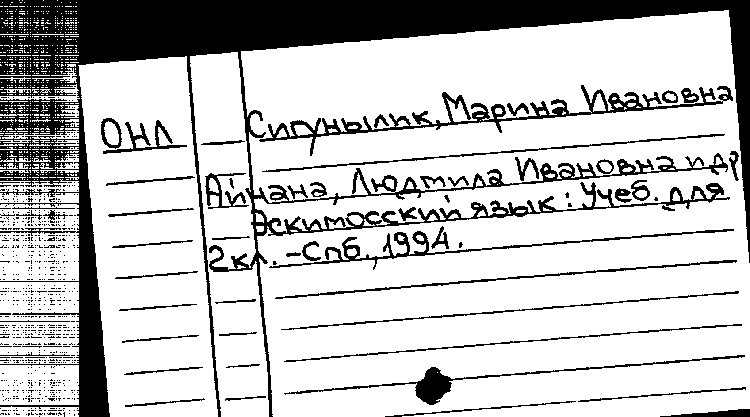 ОНЛ Сигунылик, Марина Ивановна
Айнана, Людмила Ивановна и др
Эскимосский язык: Учеб. для
2кл. - Спб., 1994.